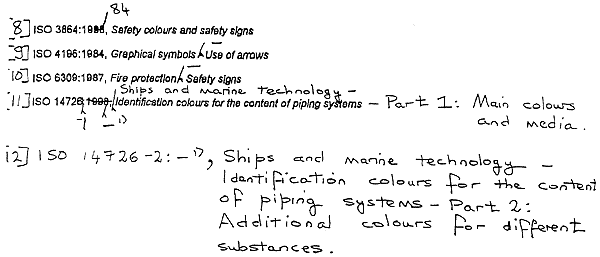 84
[8] ISO 3864:1995, Safety colours and safety signs
[9] ISO 4196:1984, Graphical symbols — Use of arrows
[10] ISO 6309:1987, Fire protection — Safety signs
Ships and marine technology —
[11] ISO 14726:1998, Identification colours for the content of piping systems — Part 1: Main colours
and media.
-1 — 1)
12] ISO 14726-2: — 1), Ships and marine technology —
Identification colours for the content
of piping systems — Part 2:
Additional colours for different
substances.